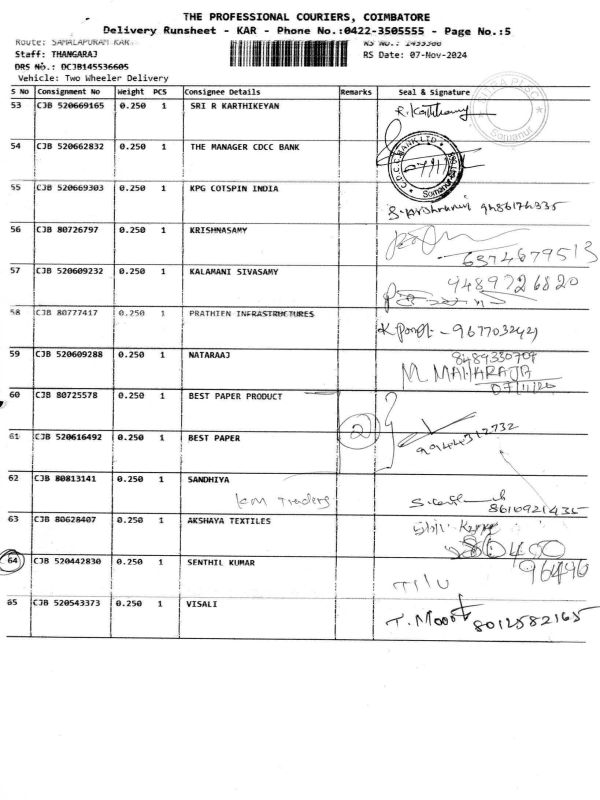 THE PROFESSIONAL COURIERS, COIMBATORE
Delivery Runsheet - KAR - Phone No.:0422-3505555 - Page No.:5
Route: SAMALAPURAM KAR
Staff: THANGARAJ
RS Date: 07-Nov-2024
DRS No.: DCJB145536605
Vehicle: Two Wheeler Delivery
S No Consignment No Weight PCS Consignee Details Remarks Seal & Signature
53 CJB 520669165 0.250 1 SRI R KARTHIKEYAN
54 CJB 520662832 0.250 1 THE MANAGER CDCC BANK
55 CJB 520669303 0.250 1 KPG COTSPIN INDIA 9486174335
56 CJB 80726797 0.250 1 KRISHNASAMY 6374679513
57 CJB 520609232 0.250 1 KALAMANI SIVASAMY 9489726820
58 CJB 80777417 0.250 1 PRATHIEN INFRASTRUCTURES
59 CJB 520609288 0.250 1 NATARAAJ 8489330707
M. MAHARAJA
60 CJB 80725578 0.250 1 BEST PAPER PRODUCT
61 CJB 520616492 0.250 1 BEST PAPER 2 9944312732
62 CJB 80813141 0.250 1 SANDHIYA
KM Traders 8610921435
63 CJB 80628407 0.250 1 AKSHAYA TEXTILES
64 CJB 520442830 0.250 1 SENTHIL KUMAR
65 CJB 520543373 0.250 1 VISALI T. 8012582165